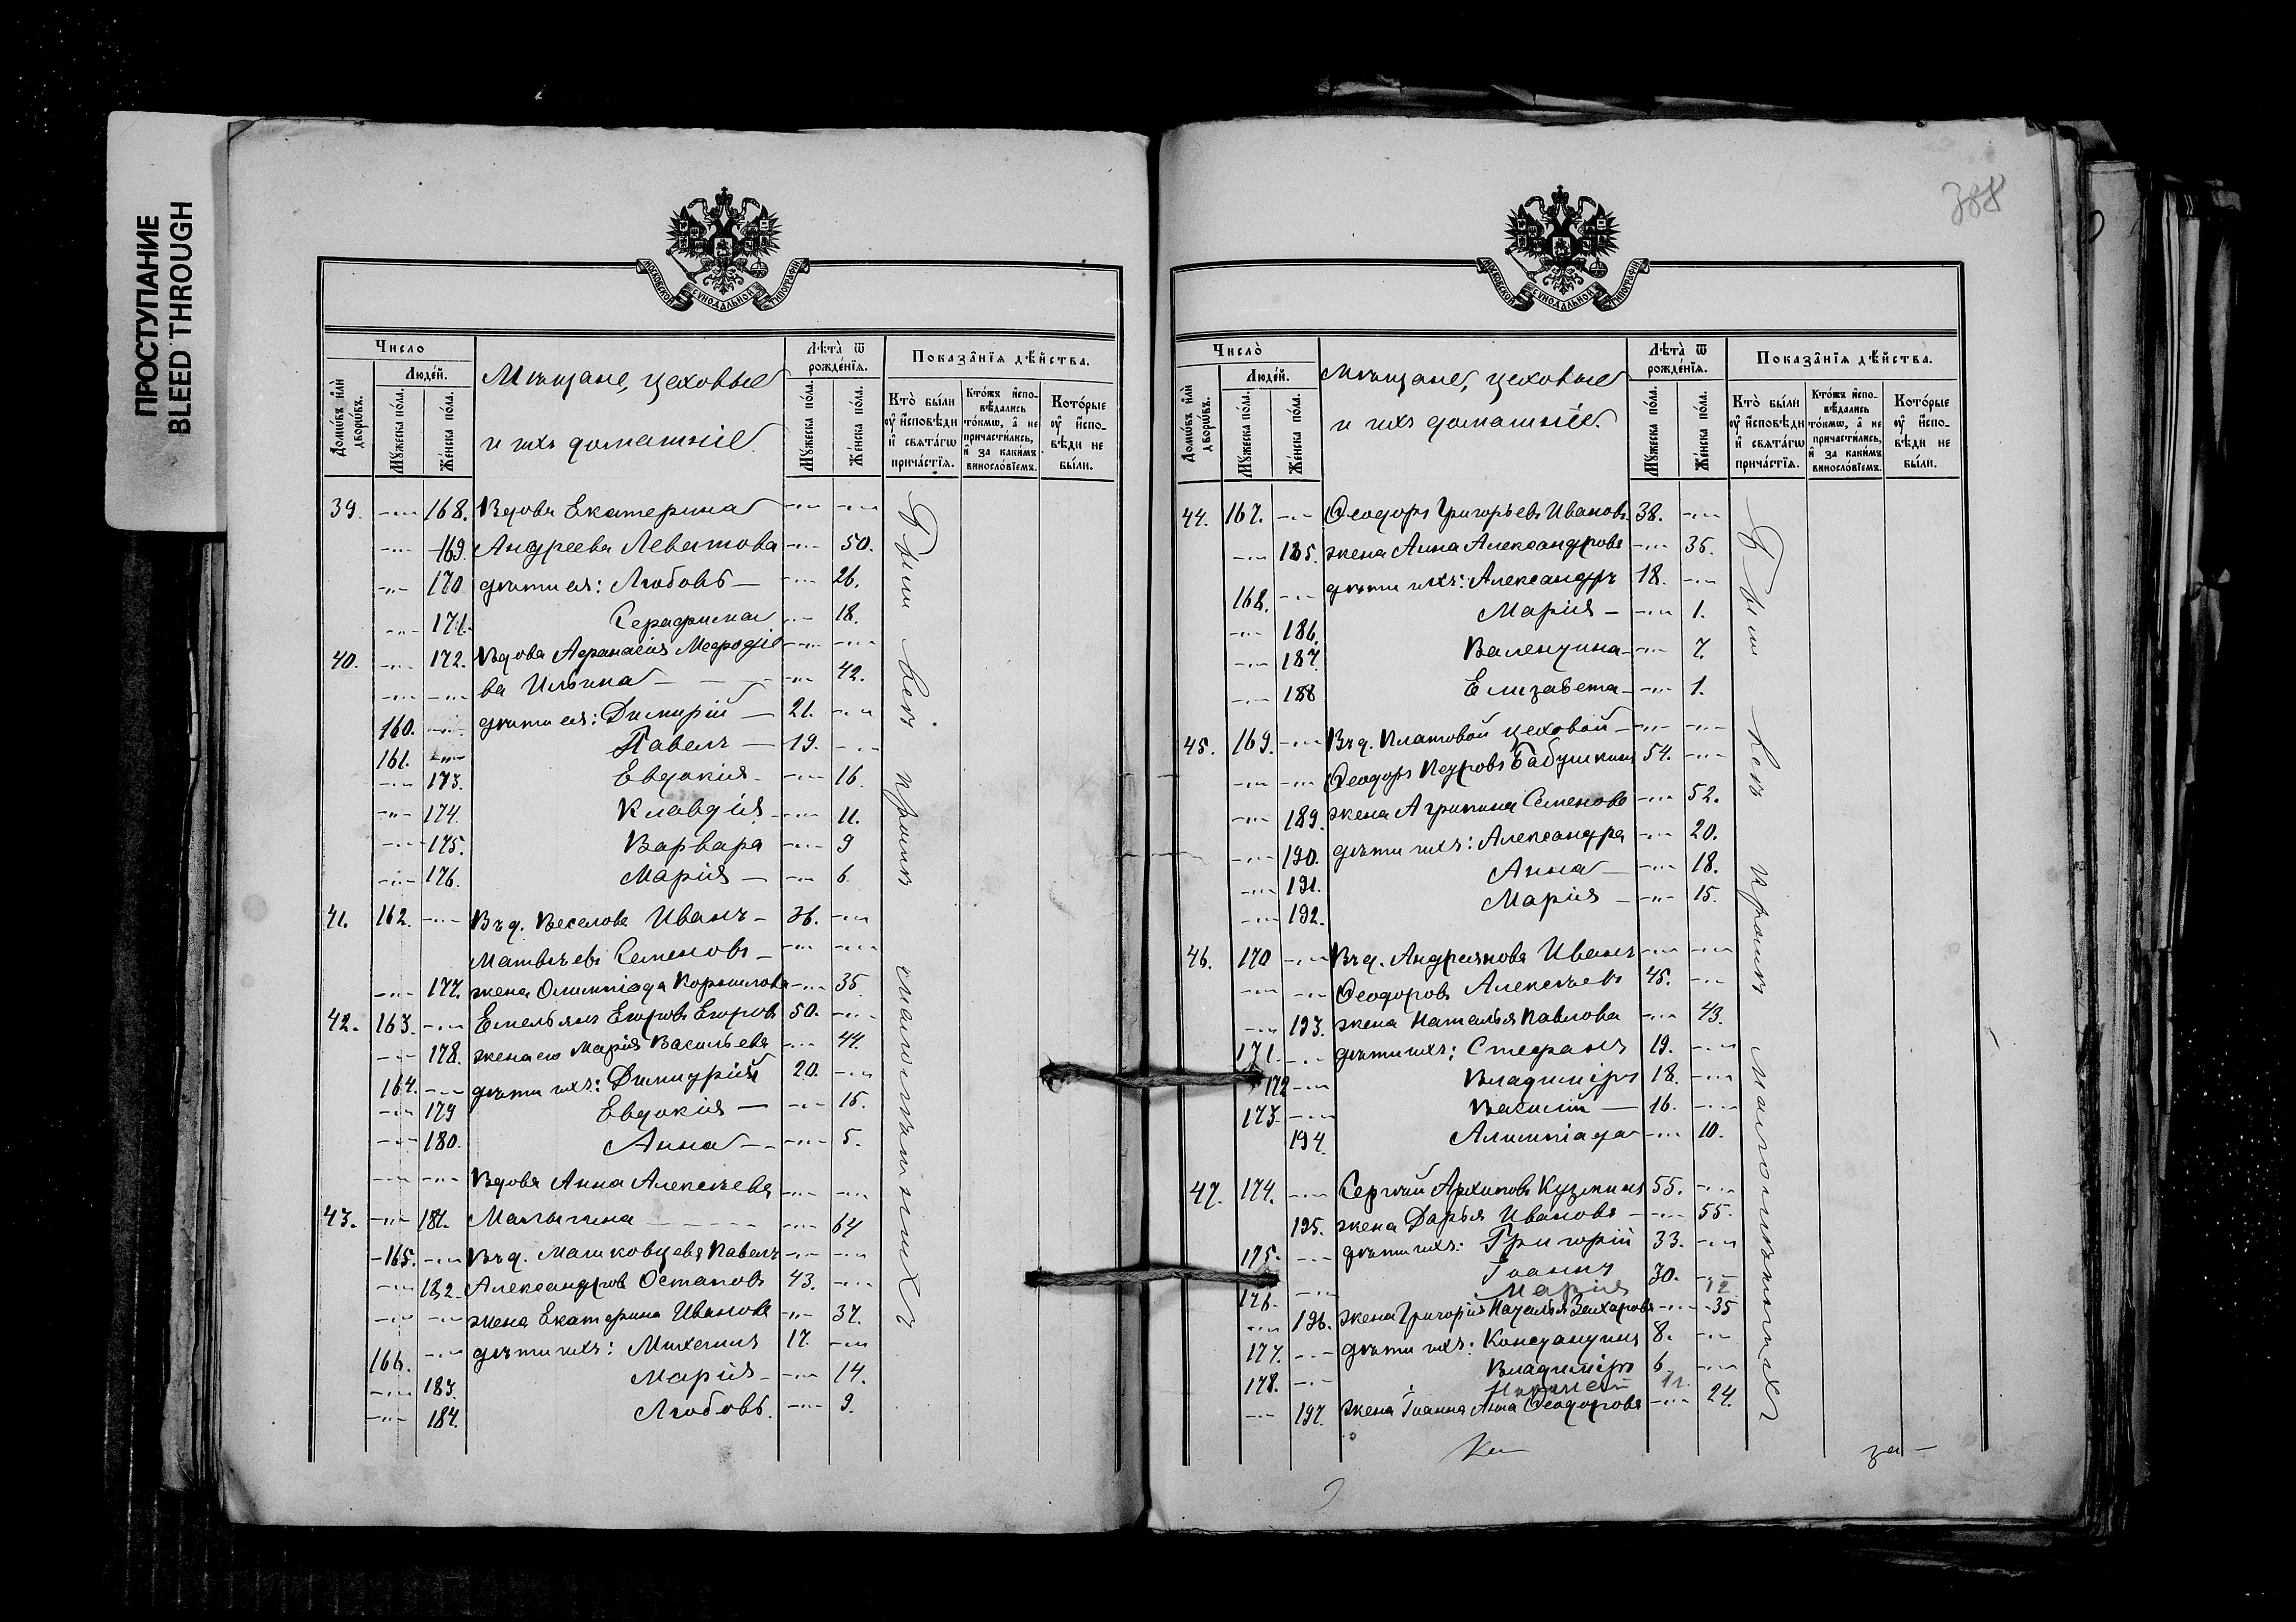 ПРОСТУПАНИЕ
BLEED THROUGH
МОСКОВСКОЙ СѴНОДАЛЬНОЙ ТИПОГРАФІИ
Число
Людей.
Домѡвъ и҆лѝ дворѡвъ.
Мꙋжеска пола.
Женска пола.
Мѣщане, цеховые
и ихъ домашніе.
Лѣта ѿ рожденїѧ.
Мꙋжеска пола.
Женска пола.
Показанїѧ дѣйства.
Кто были оу исповѣди и свѧтагѡ причастїѧ.
Ктожъ исповѣдались токмѡ, а не причастились, и за какимъ винословїемъ.
Которые оу исповѣди не были.
39. -„- 168. Вдова Екатерина -„- -„-
-„- 169. Андреева Леватова -„- 50.
-„- 170 дѣти ея: Любовь — -„- 26.
-„- 171. Серафима -„- 18.
40. -„- 172. Вдова Афанасія Мефодіе -„- -„-
-„- -„- ва Ильина — -„- 42.
160. -„- дѣти ея: Димитрій — 21. -„-
161. -„- Павелъ — 19. -„-
-„- 173. Евдокія -„- 16.
-„- 174. Клавдія -„- 11.
-„- 175. Варвара -„- 9
-„- 176. Марія — -„- 6.
41. 162. -„- Вѣд. Веселова Иванъ - 36. -„-
Матвѣевъ Семеновъ - -„- -„-
-„- 177. жена Олимпіада Корнилова -„- 35.
42. 163. -„- Емельянъ Егоровъ Егоров 50. -„-
-„- 178. жена его Марія Васильева -„- 44.
164. -„- дѣти ихъ: Димитрій 20. -„-
-„- 179 Евдокія — -„- 15.
-„- 180. Анна — -„- 5.
-„- -„- Вдова Анна Алексѣева -„- -„-
43. -„- 181. Малыгина -„- 64
165. -„- Вѣд. Машковцева Павелъ -„- -„-
-„- 182. Александров Остапов 43. -„-
-„- -„- жена Екатерина Иванова -„- 37.
166. -„- дѣти ихъ: Михаилъ 17. -„-
-„- 183. Марія -„- 14.
-„- 184. Любовь. -„- 9.
Были всѣ кромѣ малолѣтнихъ
388
МОСКОВСКОЙ СѴНОДАЛЬНОЙ ТИПОГРАФІИ
Число
Людей.
Домѡвъ и҆лѝ дворѡвъ.
Мꙋжеска пола.
Женска пола.
Мѣщане, цеховые
и ихъ домашніе.
Лѣта ѿ рожденїѧ.
Мꙋжеска пола.
Женска пола.
Показанїѧ дѣйства.
Кто были оу исповѣди и свѧтагѡ причастїѧ.
Ктожъ исповѣдались токмѡ, а не причастились, и за какимъ винословїемъ.
Которые оу исповѣди не были.
44. 167. -„- Ѳеодоръ Григорьевъ Ивановъ 38. -„-
-„- 185. жена Анна Александрова -„- 35.
168. -„- дѣти ихъ: Александръ 18. -„-
-„- 186. Марія — -„- 1.
-„- 187. Валентина -„- 7.
-„- 188 Елизавета -„- 1.
45. 169. -„- Вѣд. Платовой цеховой -„- -„-
-„- -„- Ѳеодоръ Петровъ Бабушкинъ 54. -„-
-„- 189. жена Агрипина Семенова -„- 52.
-„- 190. дѣти ихъ: Александра -„- 20.
-„- 191. Анна — -„- 18.
-„- 192. Марія — -„- 15.
46. 170 -„- Вѣд. Андріянова Иванъ -„- -„-
-„- -„- Ѳеодоровъ Алексѣевъ 45. -„-
-„- 193. жена Наталья Павлова -„- 43.
171. -„- дѣти ихъ: Стефанъ 19. -„-
172 -„- Владиміръ 18. -„-
173. -„- Василій — 16. -„-
194. Алимпіада -„- 10.
47. 174. -„- Сергѣй Архипов Кузминъ 55. -„-
195. жена Дарья Иванова -„- 55.
175. -„- дѣти ихъ: Григорій 33. -„-
176. -„- Іоаннъ 30. -„-
Марія 12
-„- 196. жена Григорія Наталья Захарова -„- 35
177. -„- дѣти ихъ: Константинъ 8. -„-
178. -„- Владиміръ 6. -„-
-„- 197. жена Іоанна Анна Ѳеодорова -„- 24.
Были всѣ кромѣ малолѣтнихъ
за —